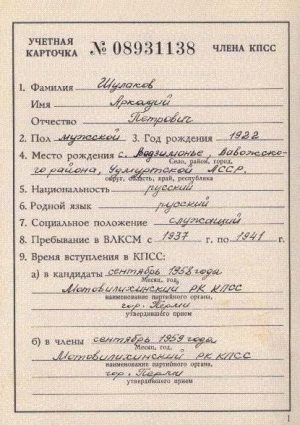 УЧЕТНАЯ КАРТОЧКА № 08931138 ЧЛЕНА КПСС
1. Фамилия Шулаков
Имя Аркадий
Отчество Петрович
2. Пол мужской 3. Год рождения 1922
4. Место рождения с. Водзимонье, Вавожско-
Село, район, город,
го района, Удмуртской АССР.
округ, область, край, республика
5. Национальность русский
6. Родной язык русский
7. Социальное положение служащий
8. Пребывание в ВЛКСМ с 1937 г. по 1941 г.
9. Время вступления в КПСС:
а) в кандидаты сентябрь 1958 года
Месяц, год,
Мотовилихинский РК КПСС
наименование партийного органа,
гор. Перми
утвердившего прием
б) в члены сентябрь 1959 года
Месяц, год,
Мотовилихинский РК КПСС
наименование партийного органа,
гор. Перми
утвердившего прием
1